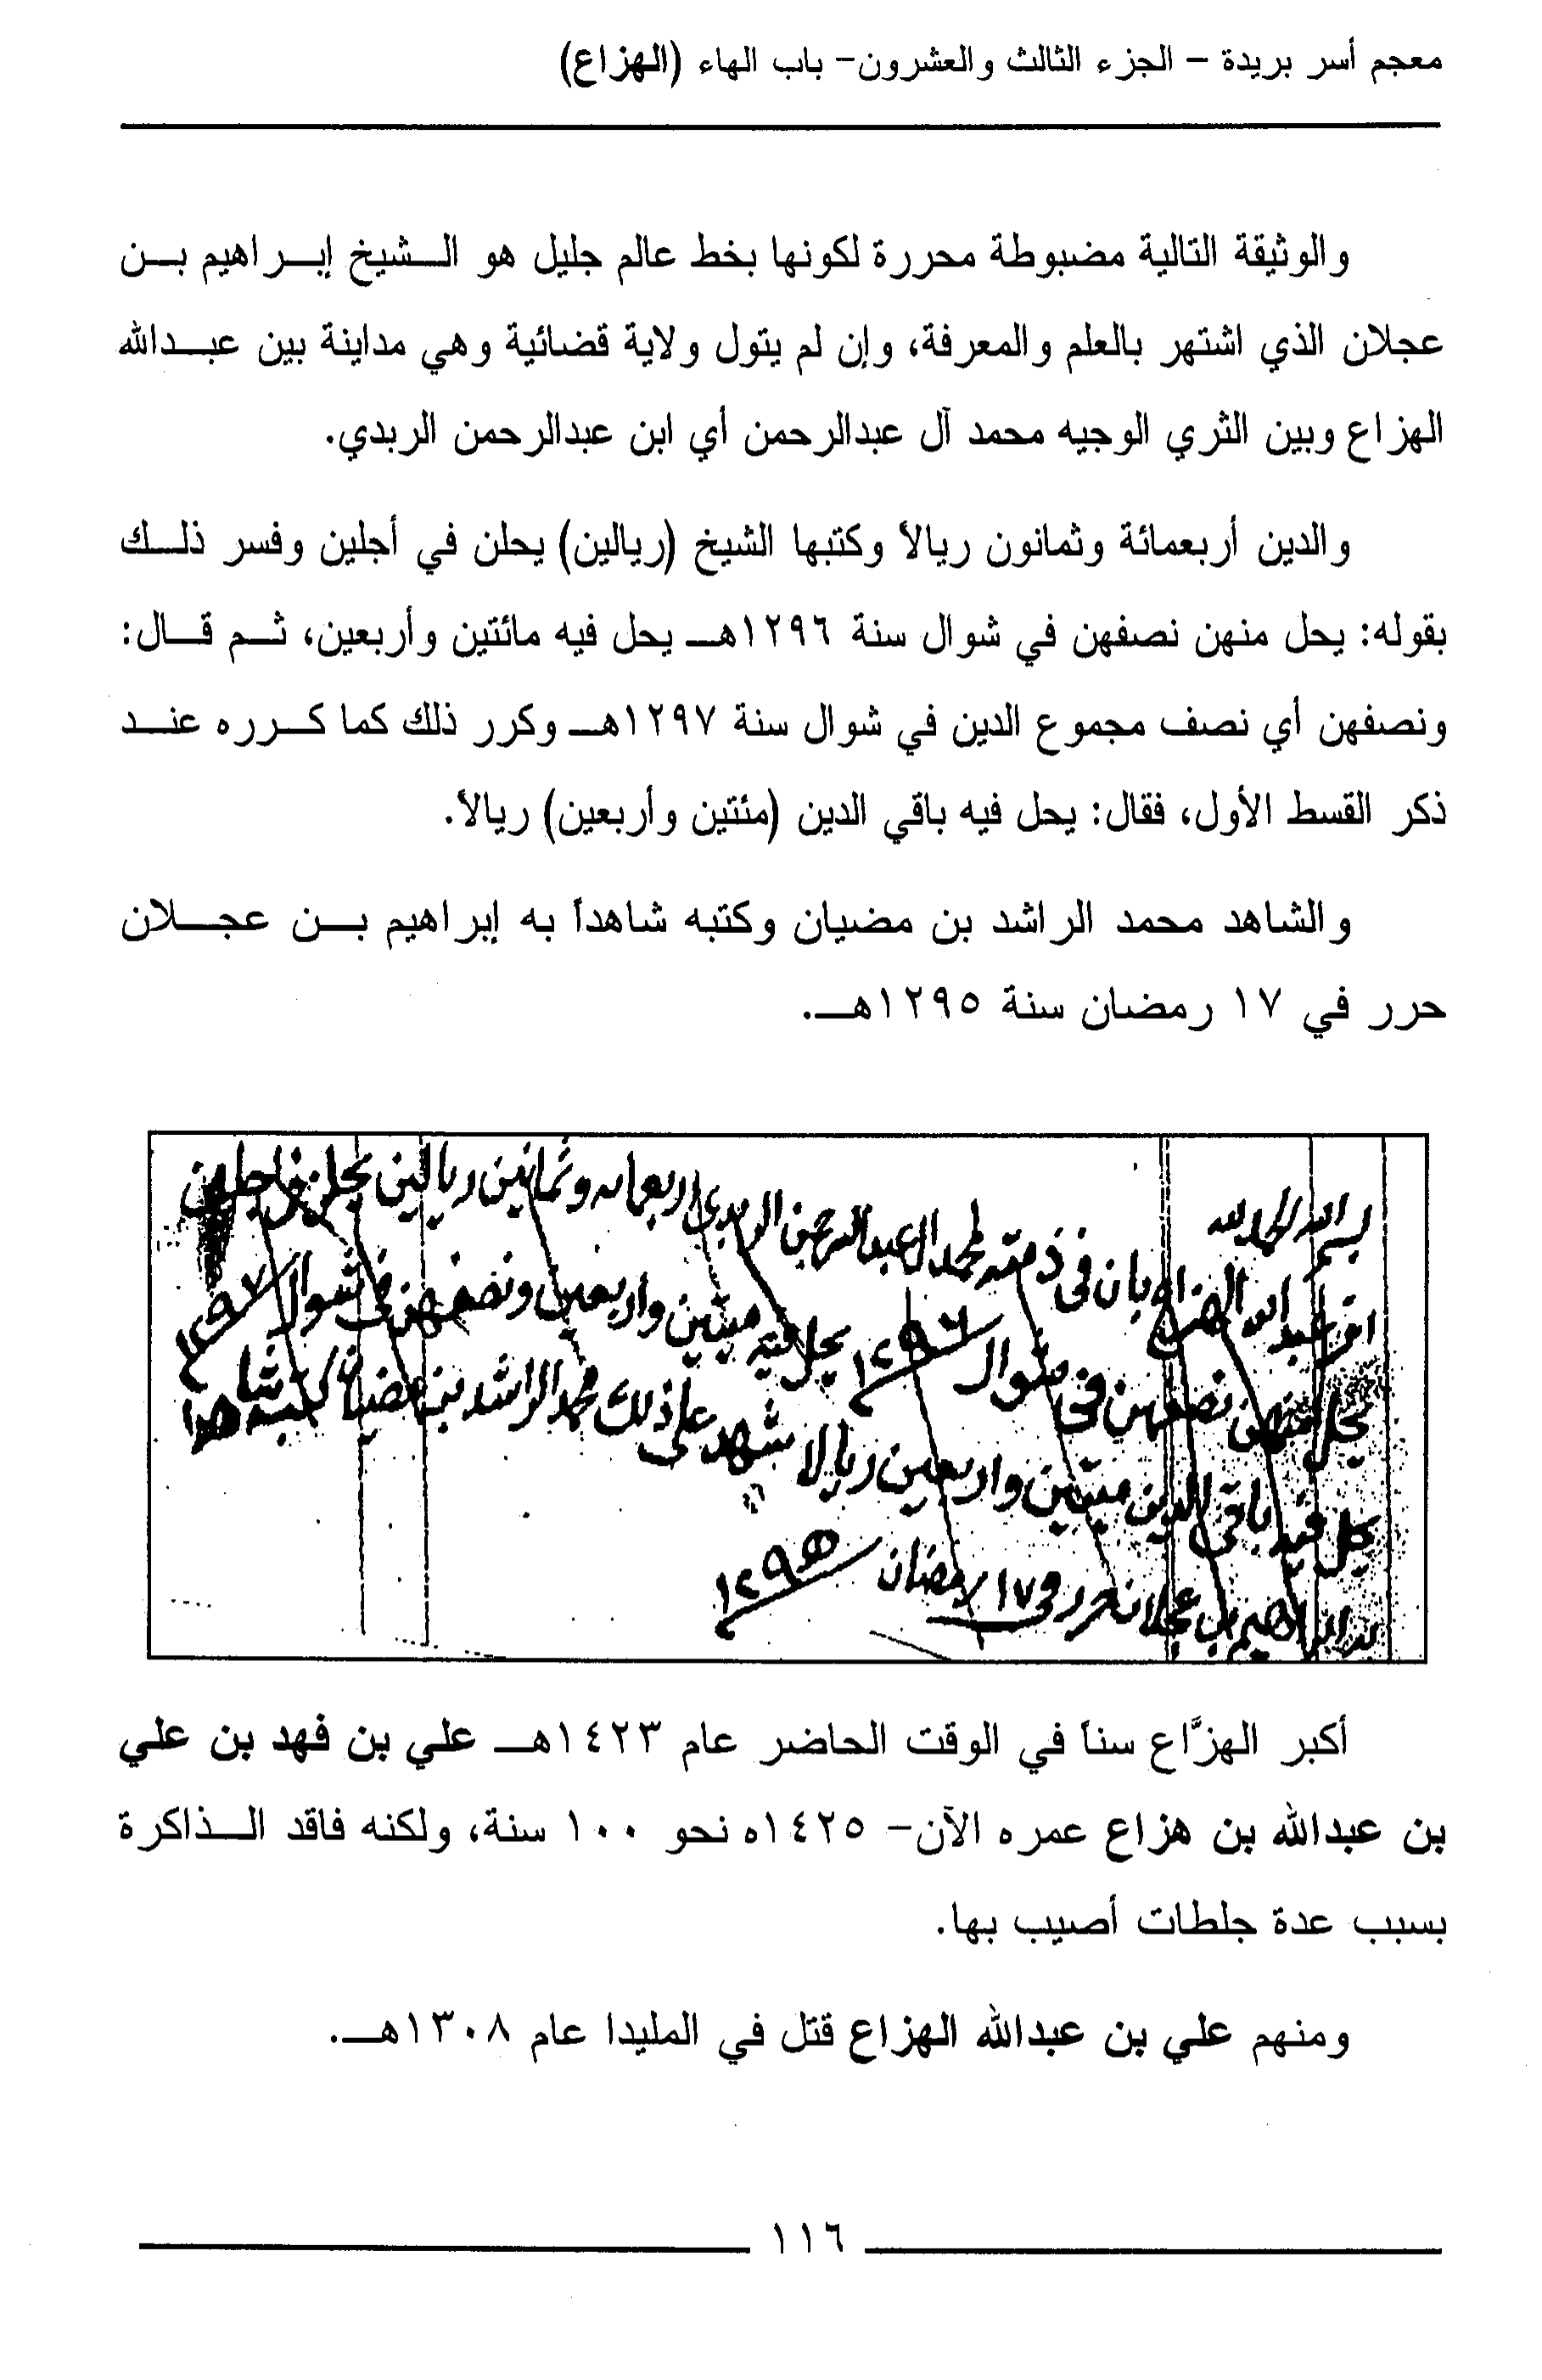 معجم أسر بريدة – الجزء الثالث والعشرون– باب الهاء (الهزاع)
والوثيقة التالية مضبوطة محررة لكونها بخط عالم جليل هو الشيخ إبراهيم بن
عجلان الذي اشتهر بالعلم والمعرفة، وإن لم يتول ولاية قضائية وهي مداينة بين عبدالله
الهزاع وبين الثري الوجيه محمد آل عبدالرحمن أي ابن عبدالرحمن الربدي.
والدين أربعمائة وثمانون ريالاً وكتبها الشيخ (ريالين) يحلن في أجلين وفسر ذلك
بقوله: يحل منهن نصفهن في شوال سنة ١٢٩٦هـ يحل فيه مائتين وأربعين، ثم قال:
ونصفهن أي نصف مجموع الدين في شوال سنة ١٢٩٧هـ وكرر ذلك كما كرره عند
ذكر القسط الأول، فقال: يحل فيه باقي الدين (مئتين وأربعين) ريالاً.
والشاهد محمد الراشد بن مضيان وكتبه شاهداً به إبراهيم بن عجلان
حرر في ١٧ رمضان سنة ١٢٩٥هـ.
بسم الله الحمد لله
اقر عبد الله الهزاع بان في ذمته لمحمد ال عبد الرحمن الربدي اربعمايه وثمانين ريالين يحلن في اجلين
يحل منهن نصفهن في شوال ١٢٩٦ يحل فيه ميتين واربعين ونصفهن في شوال ١٢٩٧
يحل فيه باقي الدين ميتين واربعين ريالا شهد على ذلك محمد الراشد بن مضيان وكتبه شاهدا
به ابراهيم بن عجلان حرر في ١٧ رمضان ١٢٩٥
أكبر الهزَّاع سناً في الوقت الحاضر عام ١٤٢٣هـ علي بن فهد بن علي
بن عبدالله بن هزاع عمره الآن– ١٤٢٥ه نحو ١٠٠ سنة، ولكنه فاقد الذاكرة
بسبب عدة جلطات أصيب بها.
ومنهم علي بن عبدالله الهزاع قتل في المليدا عام ١٣٠٨هـ.
١١٦